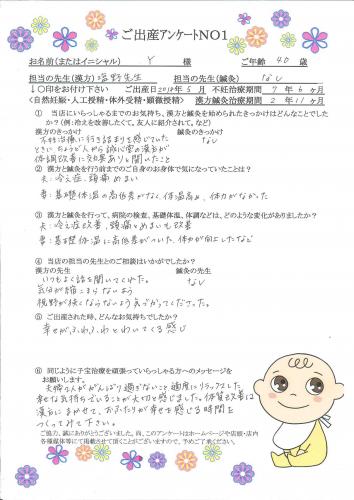 ご出産アンケートNO1
お名前(またはイニシャル) Y 様 ご年齢 40 歳
担当の先生(漢方) 塩野先生 担当の先生(鍼灸) なし
↓〇印をお付け下さい ご出産日2018年5月 不妊治療期間 7年6ヶ月
<自然妊娠・人工授精・体外受精・顕微授精> 漢方鍼灸治療期間 2年11ヶ月
① 当店にいらっしゃるまでのことで、漢方と鍼灸を始められたきっかけはどんなことでしたか？(例：冷えを改善したくて、友人に紹介されて、など)
漢方のきっかけ 鍼灸のきっかけ
不妊治療に行き詰まりを感じていた なし
ときにちょうど人から誠心堂の漢方が
体調改善に効果ありと聞いたこと
② 漢方と鍼灸を行う前までのご自身のお身体で気になっていたことは？
夫：冷え症、頭痛、めまい
妻：基礎体温の高低差がなく、低温高め、体力がなかった
③ 漢方と鍼灸を行って、病院の検査、基礎体温、体調などは、どのような変化がありましたか？
夫：冷え症改善、頭痛とめまいも改善
妻：基礎体温に高低差がついた、体力が向上したなど
④ 当店の担当の先生とのご相談はいかがでしたか？
漢方の先生 鍼灸の先生
いつもよく話を聞いてくれた。 なし
気分が縮こまらないよう
視野が狭くならないよう気づかって下さった。
⑤ ご出産されて、どんなお気持ちでしたか？
幸せがふわふわとわいてくる感じ
⑥ 同じように子宝治療を頑張っていらっしゃる方へのメッセージを
お願いします。
夫婦二人ががんばり過ぎないこと 適度にリラックスした
幸せな気持ちでいることが大切と感じました。体質改善は
漢方にまかせて、おふたりが幸せを感じる時間を
つくってみて下さい。
ご協力、誠にありがとうございました。尚、このアンケートはホームページや店頭・店内
各種媒体等にて掲載させて頂くことがございますので、予めご了承ください。